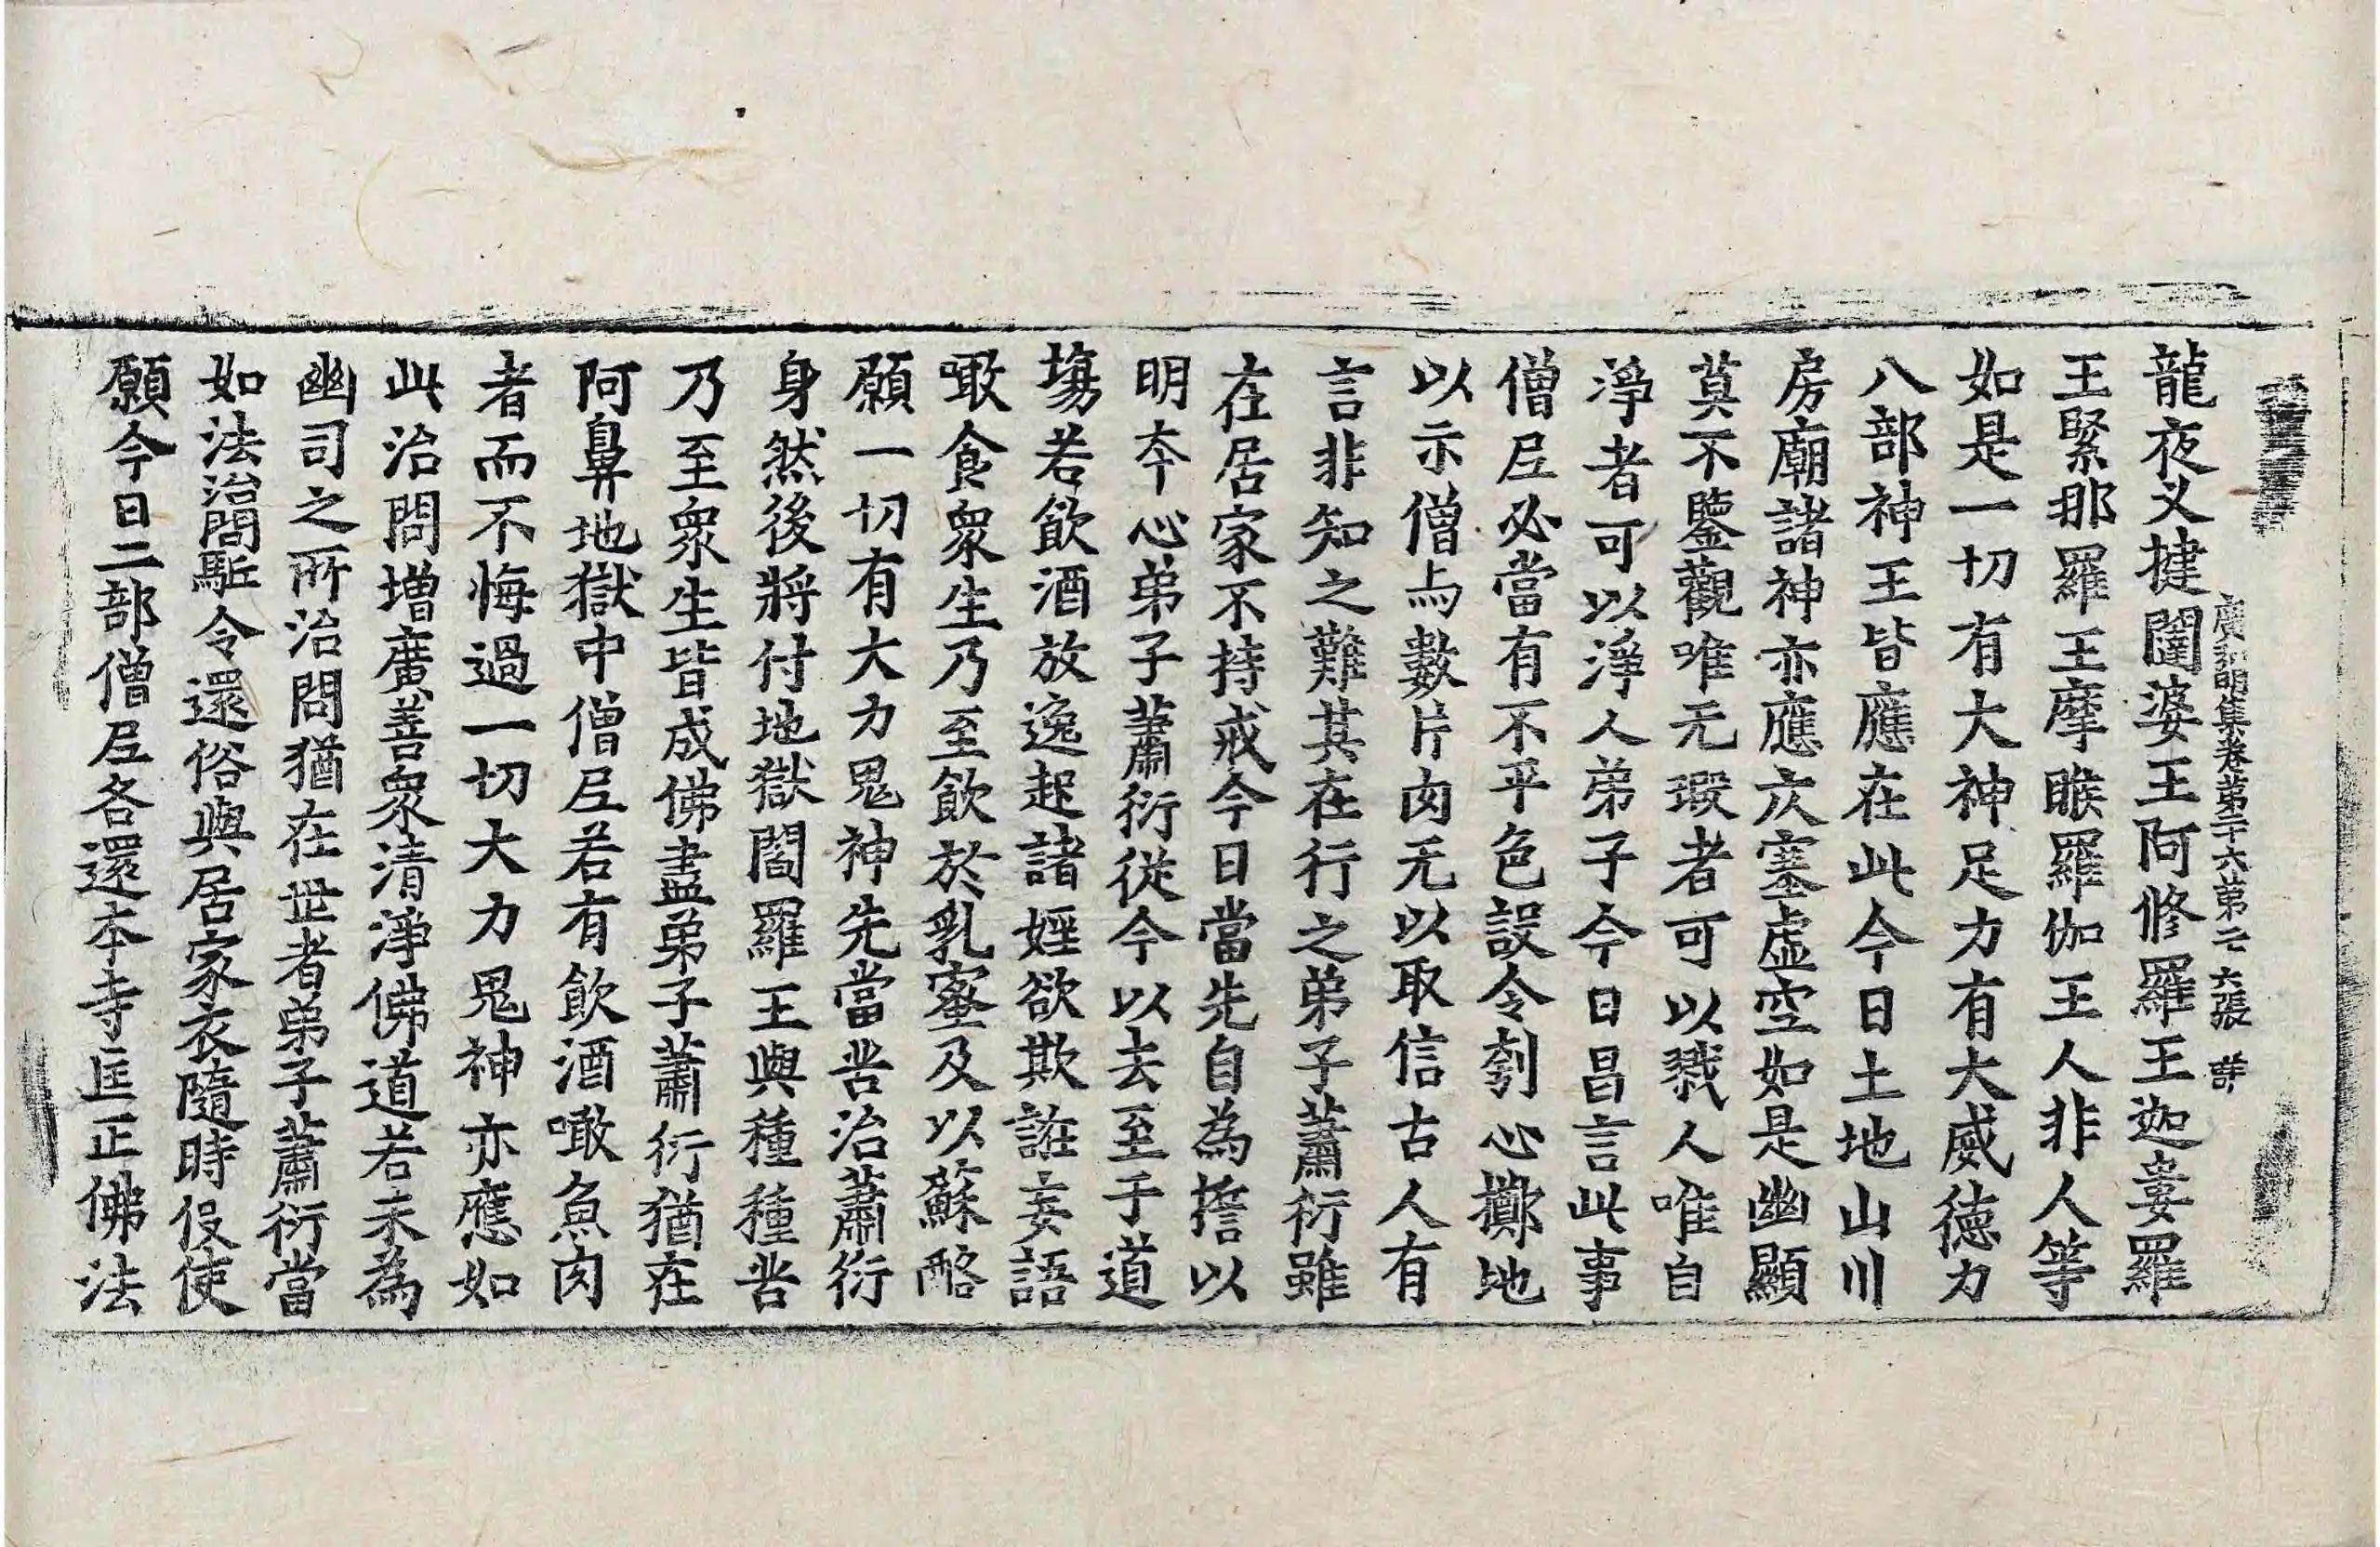 廣弘明集卷第二十六第二六張 詳
龍夜叉揵闥婆王阿修羅王迦婁羅
王緊那羅王摩睺羅伽王人非人等
如是一切有大神足力有大威德力
八部神王皆應在此今日土地山川
房廟諸神亦應次塞虛空如是幽顯
莫不鑒觀唯无瑕者可以戮人唯自
淨者可以淨人弟子今日昌言此事
僧尼必當有不平色設令刳心擲地
以示僧尼數片肉无以取信古人有
言非知之難其在行之弟子蕭衍雖
在居家不持戒今日當先自為擔以
明本心弟子蕭衍從今以去至于道
場若飲酒放逸起諸婬欲欺誑妄語
噉食衆生乃至飲於乳蜜及以蘇酪
願一切有大力鬼神先當苦治蕭衍
身然後將付地獄閻羅王與種種苦
乃至衆生皆成佛盡弟子蕭衍猶在
阿鼻地獄中僧尼若有飲酒噉魚肉
者而不悔過一切大力鬼神亦應如
此治問增廣善衆清淨佛道若未為
幽司之所治問猶在世者弟子蕭衍當
如法治問駈令還俗與居家衣隨時役使
願今日二部僧尼各還本寺匡正佛法